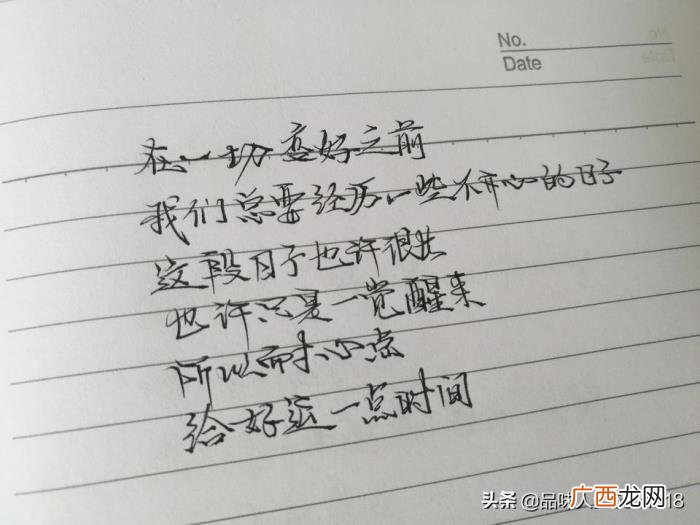 No.
Date
在一切变好之前
我们总要经历一些不开心的日子
这段日子也许很长
也许只是一觉醒来
所以耐心点
给好运一点时间
头条 @品味人
18
广西龙网